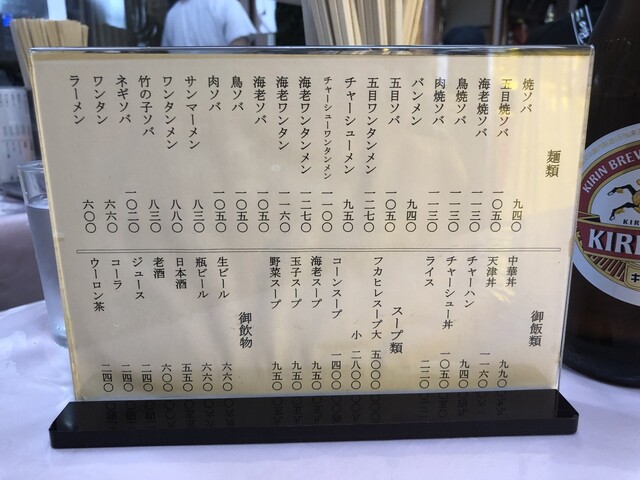 麺類
焼ソバ 九四〇
五目焼ソバ 一〇五〇
海老焼ソバ 一一三〇
鳥焼ソバ 一一三〇
肉焼ソバ 一一三〇
バンメン 九四〇
五目ソバ 一〇五〇
五目ワンタンメン 一二七〇
チャーシューメン 九五〇
チャーシューワンタンメン 一一〇〇
海老ワンタンメン 一二七〇
海老ワンタン 一一六〇
海老ソバ 一〇五〇
鳥ソバ 一〇五〇
肉ソバ 一〇五〇
サンマーメン 八三〇
ワンタンメン 八八〇
竹の子ソバ 八三〇
ネギソバ 一〇二〇
ワンタン 六六〇
ラーメン 六〇〇
御飯類
中華丼 九九〇
天津丼 一一六〇
チャーハン 九四〇
チャーシュー丼 一〇五〇
ライス 二二〇
スープ類
フカヒレスープ大 五〇〇〇
小 二八〇〇
コーンスープ 一四〇〇
海老スープ 九五〇
玉子スープ 九五〇
野菜スープ 九五〇
御飲物
生ビール 六六〇
瓶ビール 六六〇
日本酒 五五〇
老酒 六〇〇
ジュース 二四〇
コーラ 二四〇
ウーロン茶 二四〇
KIRIN BREW
KIRI